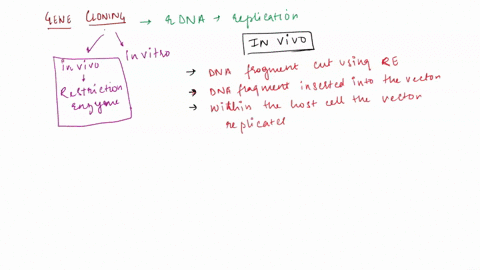 GENE CLONING → rDNA → replication
in vivo
in vitro
Restriction
Enzyme
IN VIVO
→ DNA fragment cut using RE
→ DNA fragment inserted into the vector
→ within the host cell the vector
replicates